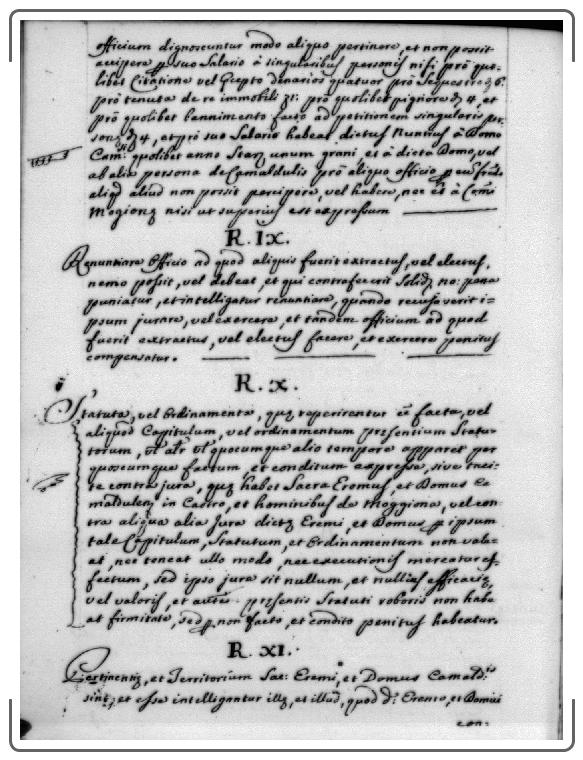 officium dignoscuntur modo aliquo pertinere, et non possit
accipere p suo Salario à singularibus personis nisi prò quo-
libet Citatione vel Precepto denarios quatuor, prò Sequestro 6:
prò tenuta de re immobili prò quolibet pignore 4, et
prò quolibet bannimento facto ad petitionem singularis per-
sonę 4, et prò suo Salario habeat dictus Nuntius à Domo
Cam: quolibet anno Star unum grani, et à dicta Domo, vel
ab alia persona de Camaldulis prò aliquo officio
aliqd aliud non possit percipere, vel habere, nec à
Mogionę nisi ut superius est expressum
R. IX.
Renuntiare Officio ad quod aliquis fuerit extractus, vel electus,
nemo possit, vel debeat, et qui contrafecerit Solid no: pena
puniatur, et intelligatur renuntiare, quando recusaverit i-
psum jurare, vel exercere, et tandem officium ad quod
fuerit extractus, vel electus facere, et exercere penitus
compensatur.
R. X.
Statuta, vel Ordinamenta, quę reperirentur facta, vel
aliquod Capitulum, vel ordinamentum presentium Statu-
torum, vt alr vl quocumque alio tempore apparet per
quoscumque factum, et conditum expresse, sive taci-
te contra jura, quę habet Sacra Eremus, et Domus Ca
maldulen in Castro, et hominibus de Moggiona, vel con-
tra aliqua alia Jura dictę Eremi, et Domus p ipsum
tale Capitulum, Statutum, et Ordinamentum non vale-
at, nec teneat ullo modo, nec executionis mereatur ef-
fectum, sed ipso jure sit nullum, et nullius efficacię,
vel valoris, et presentis Statuti roboris non habe
at firmitate, sed p non facto, et condito penitus habeatur.
R. XI.
Pertinentię, et Territorium Sac: Eremi, et Domus Camald:
sint, et esse intelligantur illę, et illud, quod d: Eremo, et Domui
con-